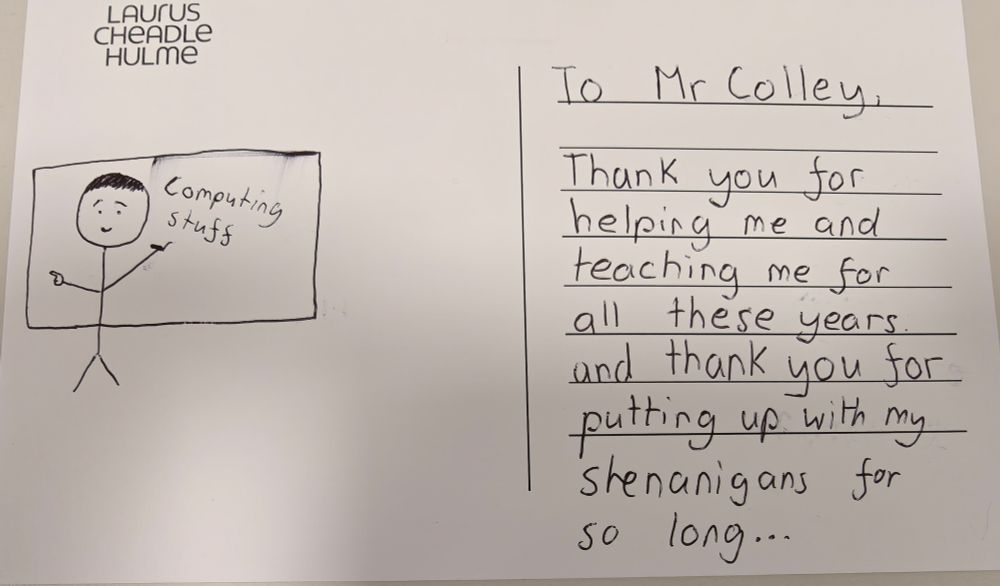 LAURUS
CHEADLE
HULME
Computing
stuff
To Mr Colley,
Thank you for
helping me and
teaching me for
all these years.
and thank you for
putting up with my
shenanigans for
so long...